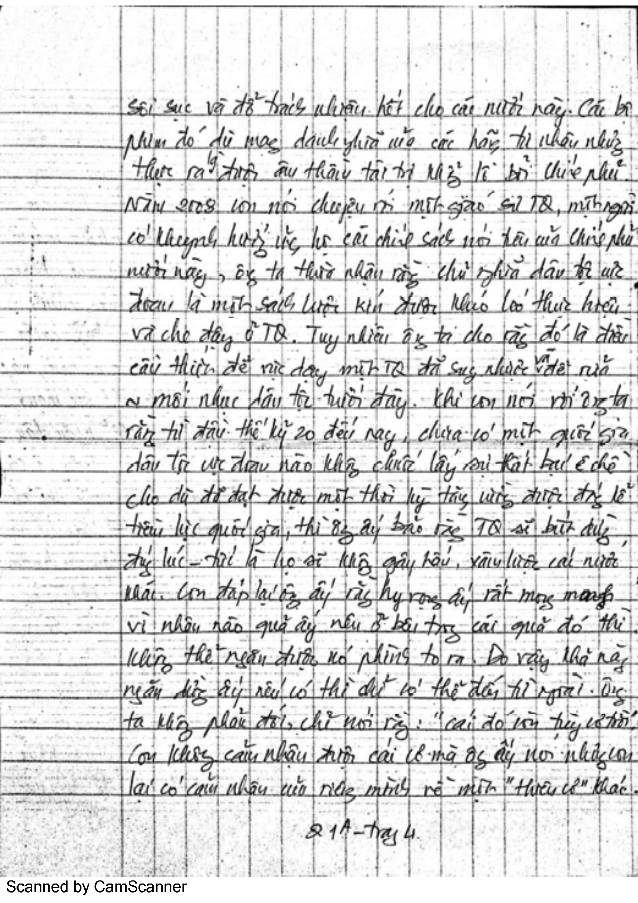 sôi sục và đổ trách nhiệm hết cho các nước này. Các bộ
phim đó dù mang danh nghĩa của các hãng tư nhân nhưng
thực ra là được âm thầm tài trợ khổng lồ bởi Chính phủ.
Năm 2008 con nói chuyện với một giáo sư TQ, một người
có khuynh hướng ủng hộ các chính sách nói trên của Chính phủ
nước này, ông ta thừa nhận rằng chủ nghĩa dân tộc cực
đoan là một sách lược kín được khéo léo thực hiện
và cho đậy ở TQ. Tuy nhiên ông ta cho rằng đó là điều
cần thiết để vực dậy một TQ đã suy nhược và để rửa
~ mối nhục dân tộc trước đây. Khi con nói với ông ta
rằng từ đầu thế kỷ 20 đến nay, chưa có một quốc gia
dân tộc cực đoan nào không chuốc lấy sự thất bại ê chề
cho dù đã đạt được một thời kỳ tăng cường được đáng kể
tiềm lực quốc gia, thì ông ấy bảo rằng TQ sẽ biết dừng
đúng lúc – tức là họ sẽ không gây hấn, xâm lược các nước
khác. Con đáp lại ông ấy rằng hy vọng ấy rất mong manh
vì nhân nào quả ấy nên ở bên trong cái quả đó thì
không thể ngăn được nó phình to ra. Do vậy khả năng
ngăn dừng ấy nếu có thì chỉ có thể đến từ ngoài. Ông
ta không phản đối, chỉ nói rằng: "cái đó còn tùy cơ trời"
Con không cảm nhận được cái cơ mà ông ấy nói nhưng con
lại có cảm nhận của riêng mình về một "thiên cơ" khác.
Q 1A – trang 4.
Scanned by CamScanner